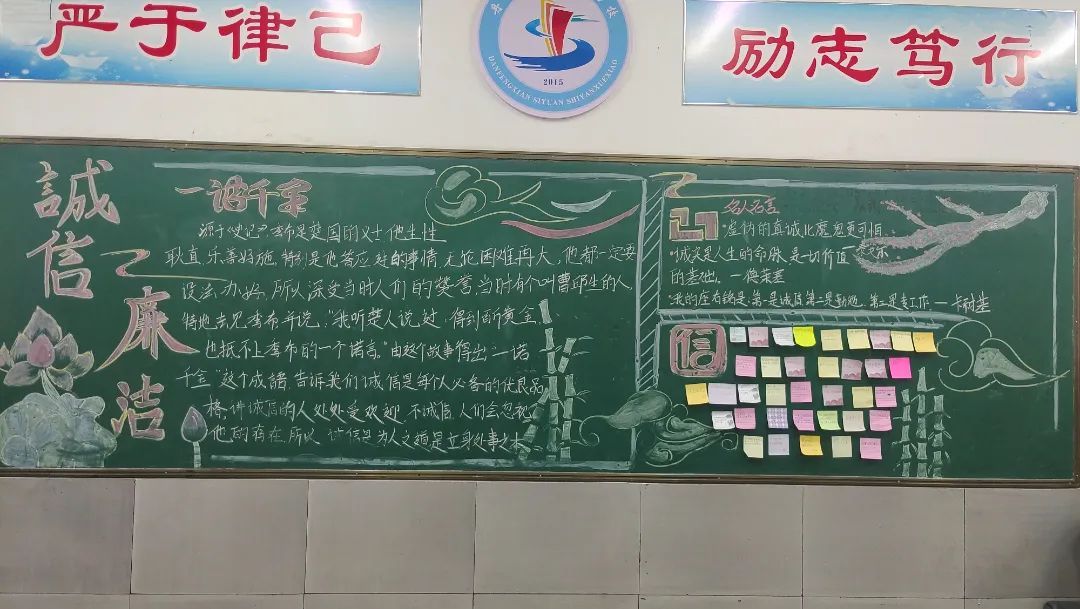 严于律己
DANFENGXIAN SIYUAN SHIYANXUEXIAO
2015
励志笃行
誠信
廉洁
一诺千金
源于《史记》季布是楚国的义士他生性
耿直,乐善好施,特别是他答应过的事情,无论困难再大,他都一定要
设法办好,所以深受当时人们的赞誉,当时有个叫曹邱生的人,
特地去见季布并说,“我听楚人说过,得到百斤黄金,
也抵不上季布的一个诺言。”由这个故事得出“一诺
千金”这个成语,告诉我们诚信是每个人必备的优良品
格,讲诚信的人处处受欢迎,不诚信,人们会忽视
他的存在,所以,诚信是为人之道是立身处事之本
名人名言
“虚伪的真诚比魔鬼更可怕。
“诚实是人生的命脉,是一切价值
的基础。 —德莱塞
“我的座右铭是:第一是诚信,第二是勤勉,第三是专工作 — 卡耐基
信